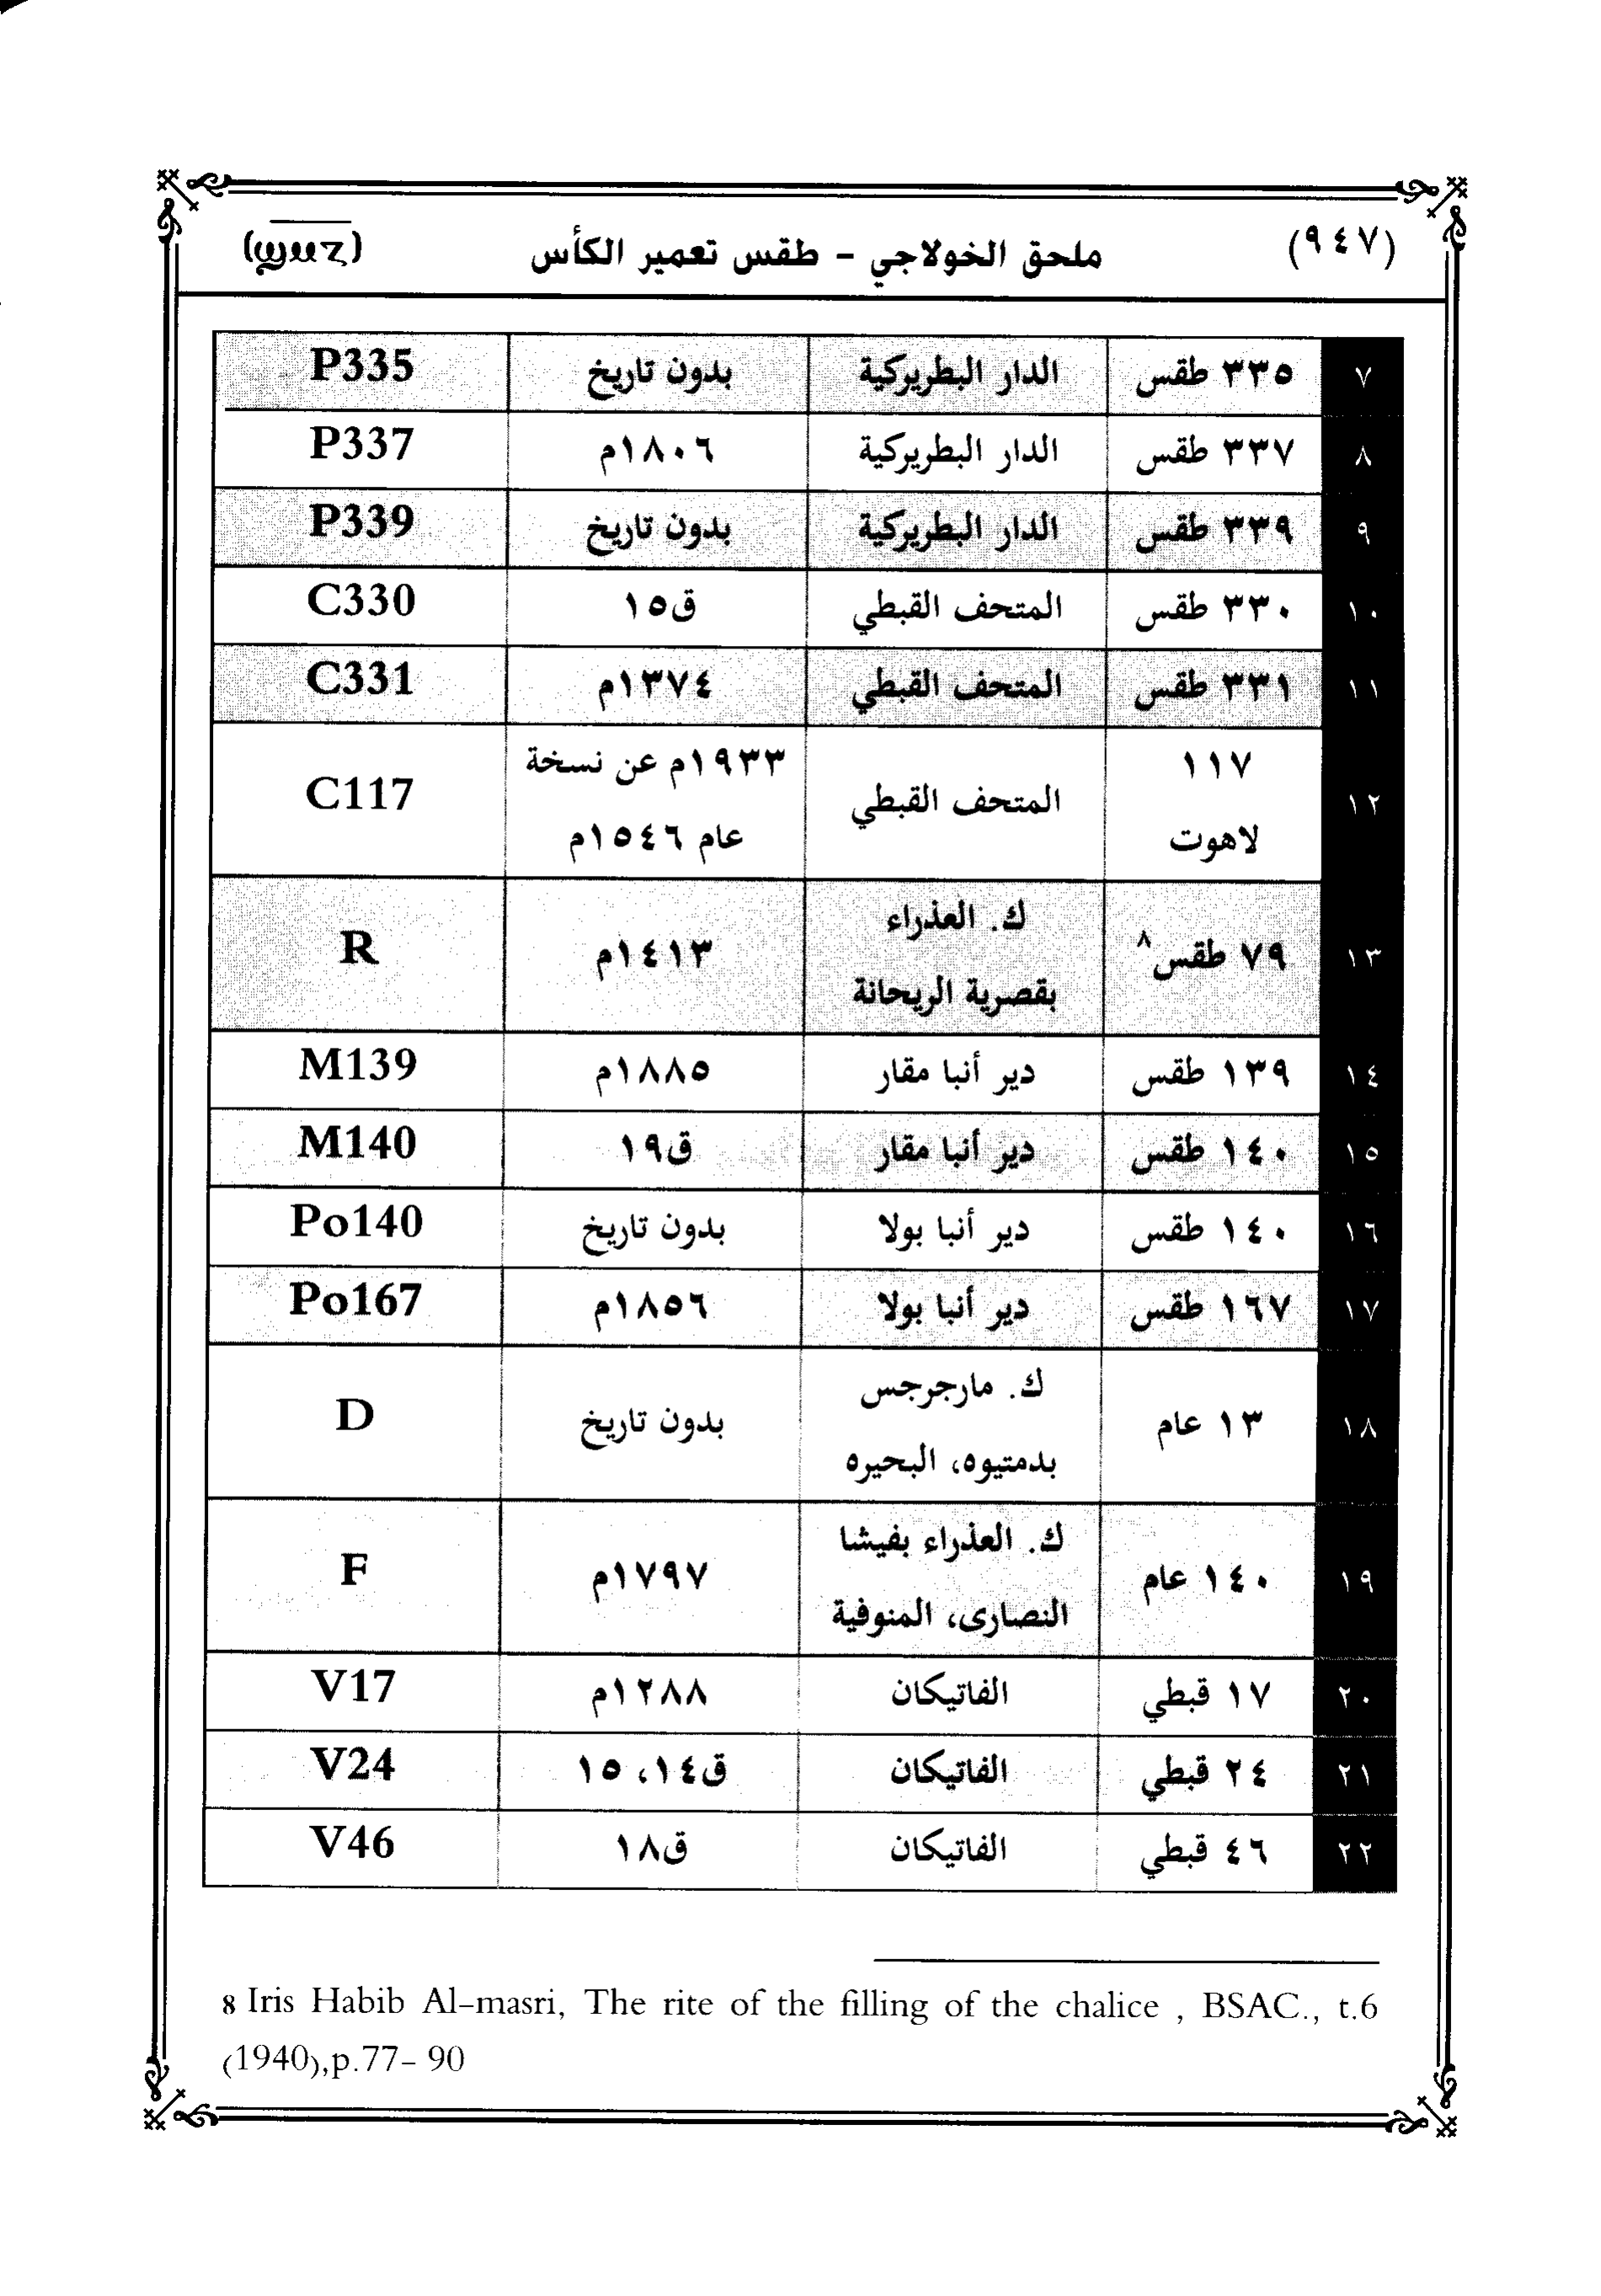 (٩٤٧) ملحق الخولاجي - طقس تعمير الكأس (ϣⲙⲍ)
٧ ٣٣٥ طقس الدار البطريركية بدون تاريخ P335
٨ ٣٣٧ طقس الدار البطريركية ١٨٠٦م P337
٩ ٣٣٩ طقس الدار البطريركية بدون تاريخ P339
١٠ ٣٣٠ طقس المتحف القبطي ق١٥ C330
١١ ٣٣١ طقس المتحف القبطي ١٣٧٤م C331
١٢ ١١٧
لاهوت المتحف القبطي ١٩٣٣م عن نسخة
عام ١٥٤٦م C117
١٣ ٧٩ طقس٨ ك. العذراء
بقصرية الريحانة ١٤١٣م R
١٤ ١٣٩ طقس دير أنبا مقار ١٨٨٥م M139
١٥ ١٤٠ طقس دير أنبا مقار ق١٩ M140
١٦ ١٤٠ طقس دير أنبا بولا بدون تاريخ Po140
١٧ ١٦٧ طقس دير أنبا بولا ١٨٥٦م Po167
١٨ ١٣ عام ك. مارجرجس
بدمتيوه، البحيره بدون تاريخ D
١٩ ١٤٠ عام ك. العذراء بفيشا
النصارى، المنوفية ١٧٩٧م F
٢٠ ١٧ قبطي الفاتيكان ١٢٨٨م V17
٢١ ٢٤ قبطي الفاتيكان ق١٤، ١٥ V24
٢٢ ٤٦ قبطي الفاتيكان ق١٨ V46
8 Iris Habib Al-masri, The rite of the filling of the chalice , BSAC., t.6
(1940),p.77- 90